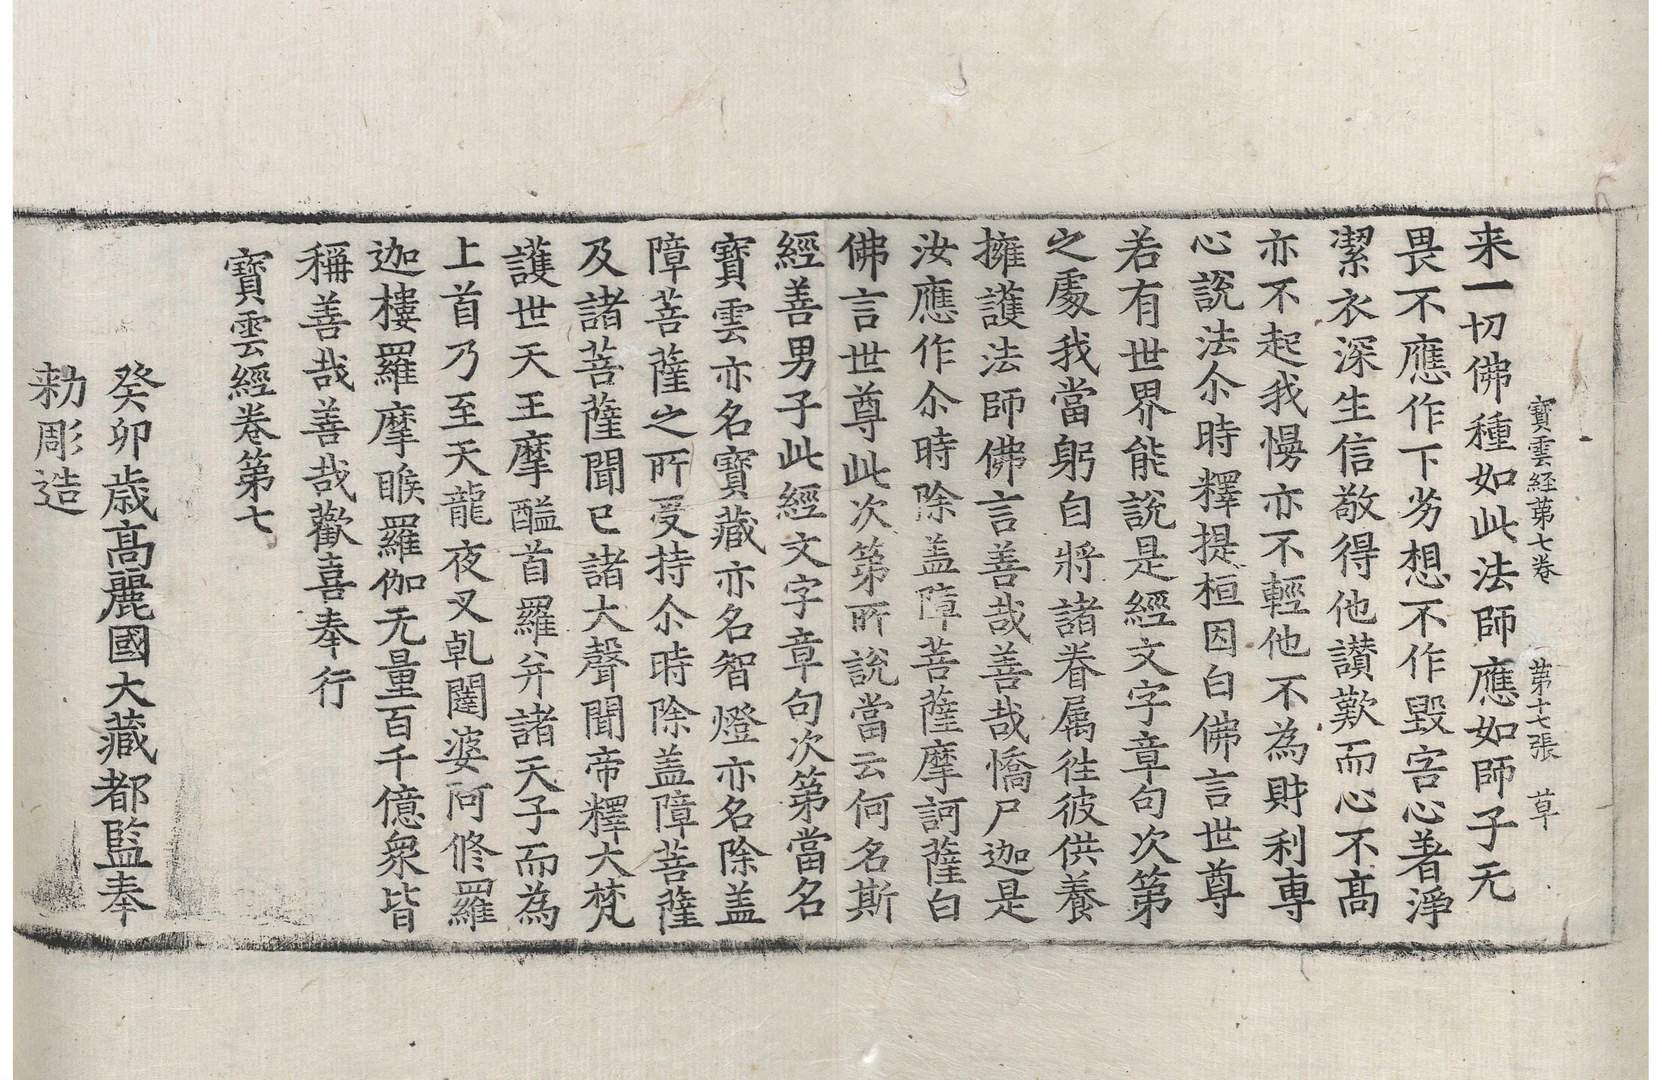 寶雲経第七卷 第十七張 草
来一切佛種如此法師應如師子无
畏不應作下劣想不作毀害心著淨
潔衣深生信敬得他讃歎而心不髙
亦不起我慢亦不輕他不為財利專
心説法尒時釋提桓因白佛言世尊
若有世界能說是經文字章句次第
之處我當躬自將諸眷属徃彼供養
擁護法師佛言善哉善哉憍尸迦是
汝應作尒時除盖障菩薩摩訶薩白
佛言世尊此次第所說當云何名斯
經善男子此經文字章句次第當名
寳雲亦名寳藏亦名智燈亦名除盖
障菩薩之所受持尒時除盖障菩薩
及諸菩薩聞已諸大聲聞帝釋大梵
護世天王摩醯首羅并諸天子而為
上首乃至天龍夜叉乹闥婆阿修羅
迦樓羅摩睺羅伽无量百千億衆皆
稱善哉善哉歡喜奉行
寶雲經卷第七
癸卯歳髙麗國大藏都監奉
勅彫造